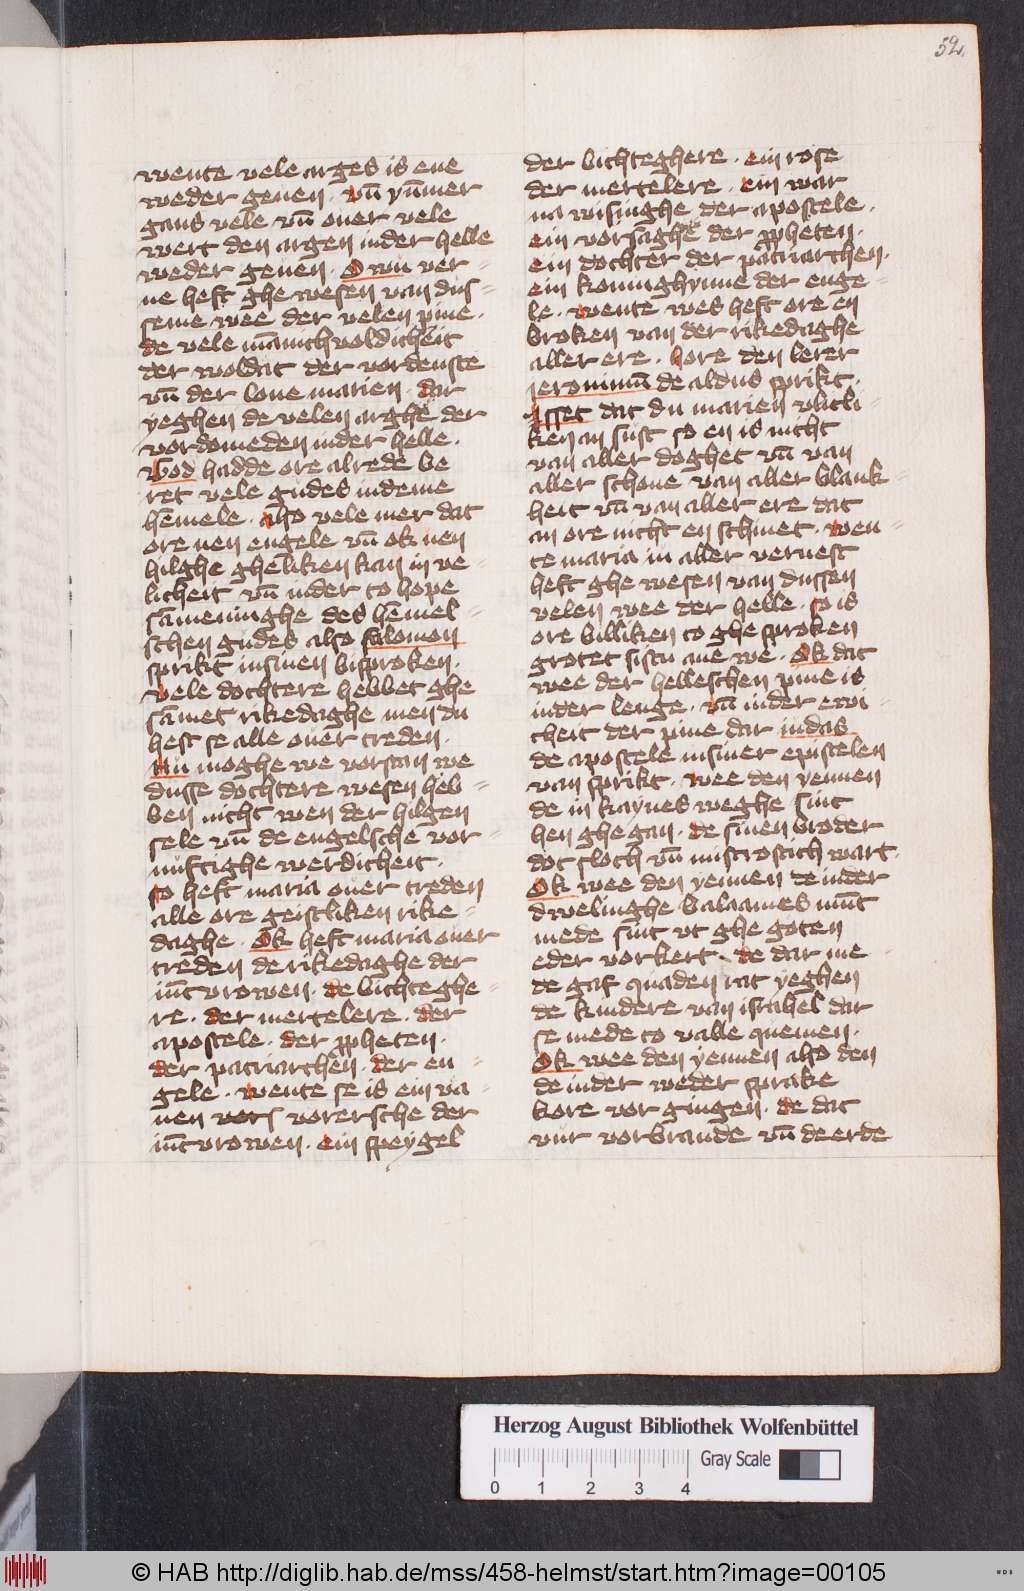 52
wente vele arges is eme
weder geuen. vn̄ yūmer
gans vele vn̄ ouer vele
wert den argen in der helle
weder geuen. O wu ver=
ne heft ghe wesen van dus=
seme wee der velen pine.
de vele mānichvoldicheit
der woldat der vordenste
vn̄ der loue marien. dar
yeghen de velen arghe der
vordomeden in der helle.
vod hadde ore alrede be
ret vele gudes in deme
hēmele. also vele mer dat
ore nen engele vn̄ ok nen
hilghe gheliken kan in ve=
licheit vn̄ in der to hope
sāmeninghe des hēmel=
schen gudes also salomon
sprikt in sinen bisproken.
vele dochtere hebbet ghe
sāmet rikedaghe men du
hest se alle ouer treden.
Nu moghe we vorstan we
dusse dochtere wesen heb=
ben nicht wen der hilgen
sele vn̄ de engelsche vor=
nuftighe werdicheit.
so heft maria ouer treden
alle ore geistliken rike=
daghe. Ok heft maria ouer
treden de rikedaghe der
iūcvrowen. de bichteghe=
re. der mertelere. der
apostele. der ppheten.
der patriarchen. der en=
gele. wente se is ein va=
nen vors vorersche der
iūcvrowen. ein speygel
der bichteghere. ein rose
der mertelere. ein war
na wisinghe der apostele.
ein vorsaghe der ppheten.
ein dochter der patriarchen.
ein konninghynne der enge=
le. wente wes heft ore en
broken van der rikedaghe
aller ere. hore den lerer
ieronimū de aldus sprikt.
Isset dat du marien vlitli=
ken an sust so en is nicht
van aller doghet vn̄ van
aller schone van aller blank=
heit vn̄ van aller ere dat
an ore nicht en schinet. wen=
te maria in aller vernest
heft ghe wesen van dussen
velen wee der helle. so is
ore billiken to ghe sproken
grotet sistu ane we. Ok dat
wee der helleschen pine is
in der lenge. vn̄ in der ewi=
cheit der pine dar iudas
de apostele in siner epistelen
van sprikt. wee den yennen
de in kaynes weghe sint
hen ghe gan. de sinen broder
dot sloch vn̄ mistrostich wart.
Ok wee den yennen de in der
dwelinghe balaames mūt
mede sint vt ghe goten
eder vorkert. de dar me=
de gaf quaden rat yeghen
de kindere van israhel dar
se mede to valle quemen.
Ok wee den yennen also den
de in der weder sprake
kore vor gingen. de dat
vur vorbrande vn̄ de erde
Herzog August Bibliothek Wolfenbüttel
0 1 2 3 4
Gray Scale
© HAB http://diglib.hab.de/mss/458-helmst/start.htm?image=00105